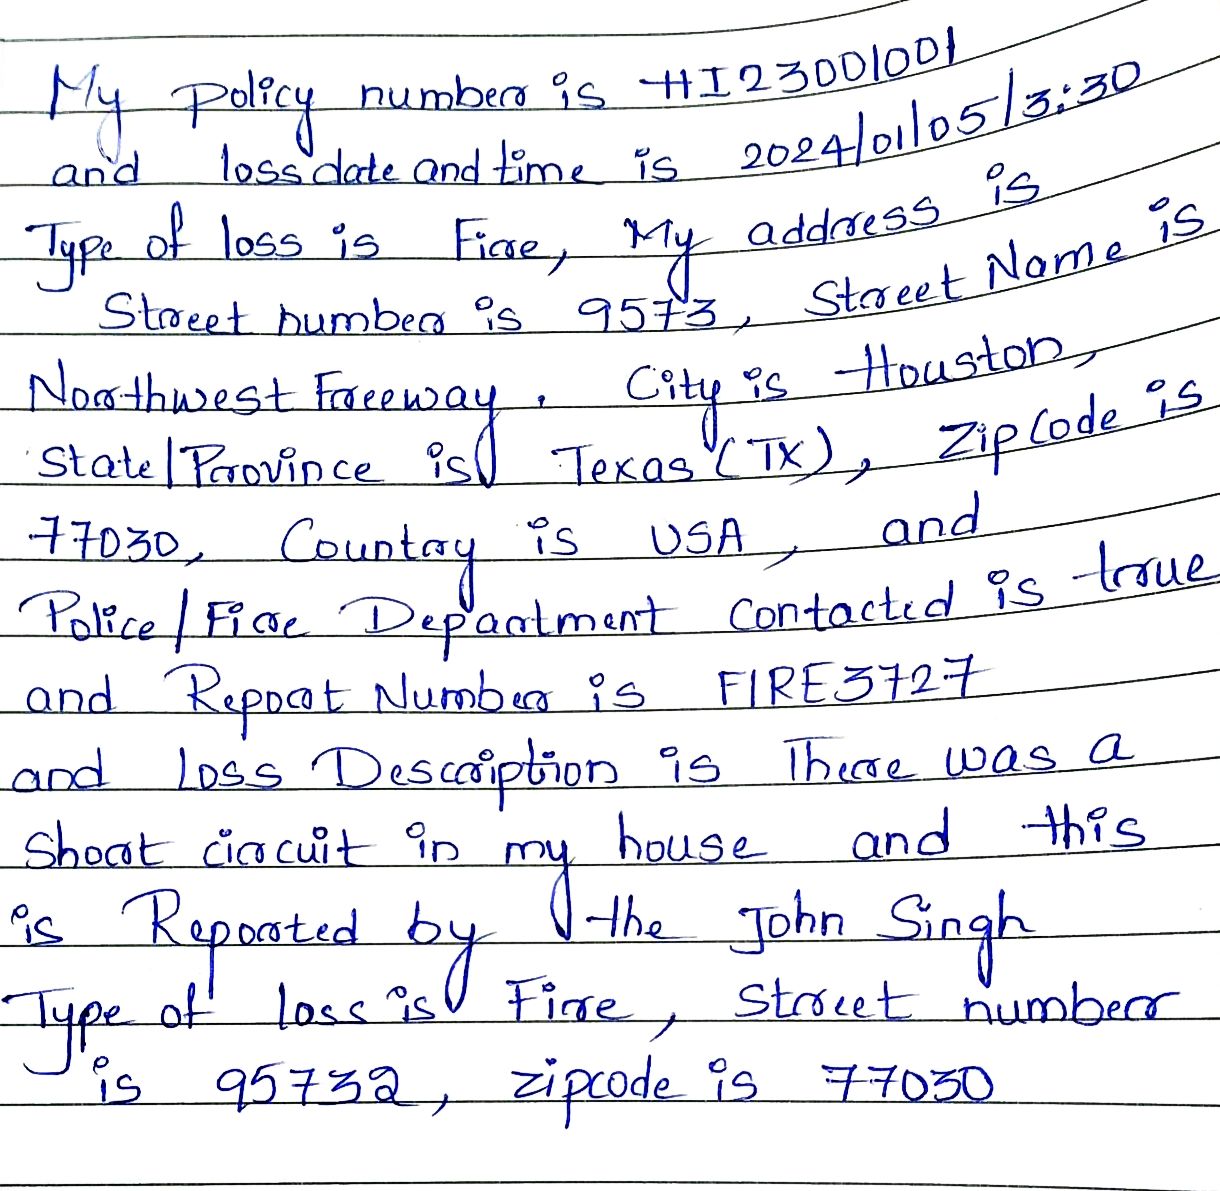 My policy number is HI23001001
and loss date and time is 2024/01/05/3:30
Type of loss is Fire, My address is
Street number is 9573, Street Name is
Northwest Freeway, City is Houston,
State/Province is Texas (TX), Zipcode is
77030, Country is USA, and
Police/Fire Department contacted is true
and Report Number is FIRE3727
and Loss Description is There was a
Short circuit in my house and this
is Reported by the John Singh
Type of loss is Fire, Street number
is 95732, zipcode is 77030